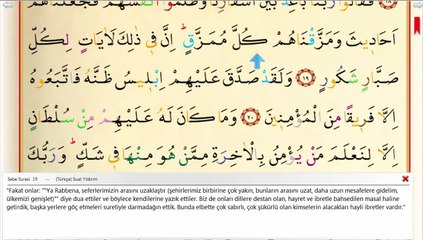 فَقَالُوا رَبَّنَا بَاعِدْ بَيْنَ اَسْفَارِنَا وَظَلَمُٓوا اَنْفُسَهُمْ فَجَعَلْنَاهُمْ
اَحَاد۪يثَ وَمَزَّقْنَاهُمْ كُلَّ مُمَزَّقٍۜ اِنَّ ف۪ي ذٰلِكَ لَاٰيَاتٍ لِكُلِّ
صَبَّارٍ شَكُورٍ ﴿١٩﴾ وَلَقَدْ صَدَّقَ عَلَيْهِمْ اِبْل۪يسُ ظَنَّهُ فَاتَّبَعُوهُ
اِلَّا فَر۪يقًا مِنَ الْمُؤْمِن۪ينَ ﴿٢٠﴾ وَمَا كَانَ لَهُ عَلَيْهِمْ مِنْ سُلْطَانٍ
اِلَّا لِنَعْلَمَ مَنْ يُؤْمِنُ بِالْاٰخِرَةِ مِمَّنْ هُوَ مِنْهَا ف۪ي شَكٍّۜ وَرَبُّكَ
Sebe Suresi 19 --- (Türkçe) Suat Yıldırım
"Fakat onlar: ""Ya Rabbena, seferlerimizin arasını uzaklaştır (şehirlerimiz birbirine çok yakın, bunların arasını uzat, daha uzun mesafelere gidelim,
ülkemizi genişlet)." diye dua ettiler ve böylece kendilerine yazık ettiler. Biz de onları dillere destan olan, hayret ve ibretle bahsedilen masal haline
getirdik, başka yerlere göç etmeleri suretiyle darmadağın ettik. Bunda elbette çok sabırlı, çok şükürlü olan kimselerin alacakları hayli ibretler vardır."